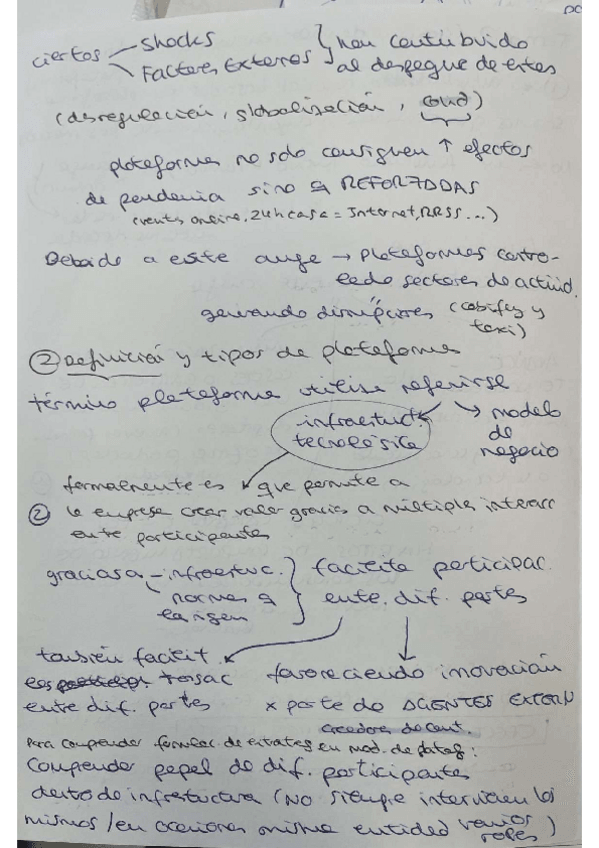 ciertos shocks Factores Externos } han contribuido al despegue de estas
(desregulación, globalización, covid)
plataformas no solo consiguen ↑ efectos
de pendencia sino q REFORZADAS
(ventas online, 24h casa = Internet, RRSS...)
Debido a este auge → plataformas contro-
lado sectores de activid.
generando disrupciones (cabify y taxi)
② Definición y tipos de plataforma
término plataforma utiliza referirse
infraestruct. tecnológica
modelo de negocio
formalmente es que permite a
② la empresa crear valor gracias a múltiples interacc
entre participantes
gracias a - infraestruc. } facilita participac.
normas q la rigen
entre dif. partes
también facilit favoreciendo inovación
transac
entre dif. partes x parte de AGENTES EXTERN
creadores de cont.
Para comprender de estrateg en mod. de plataf:
Comprender papel de dif. participantes
dentro de infraestructura (No siempre intervienen los
mismos / en ocasiones misma entidad varios roles)